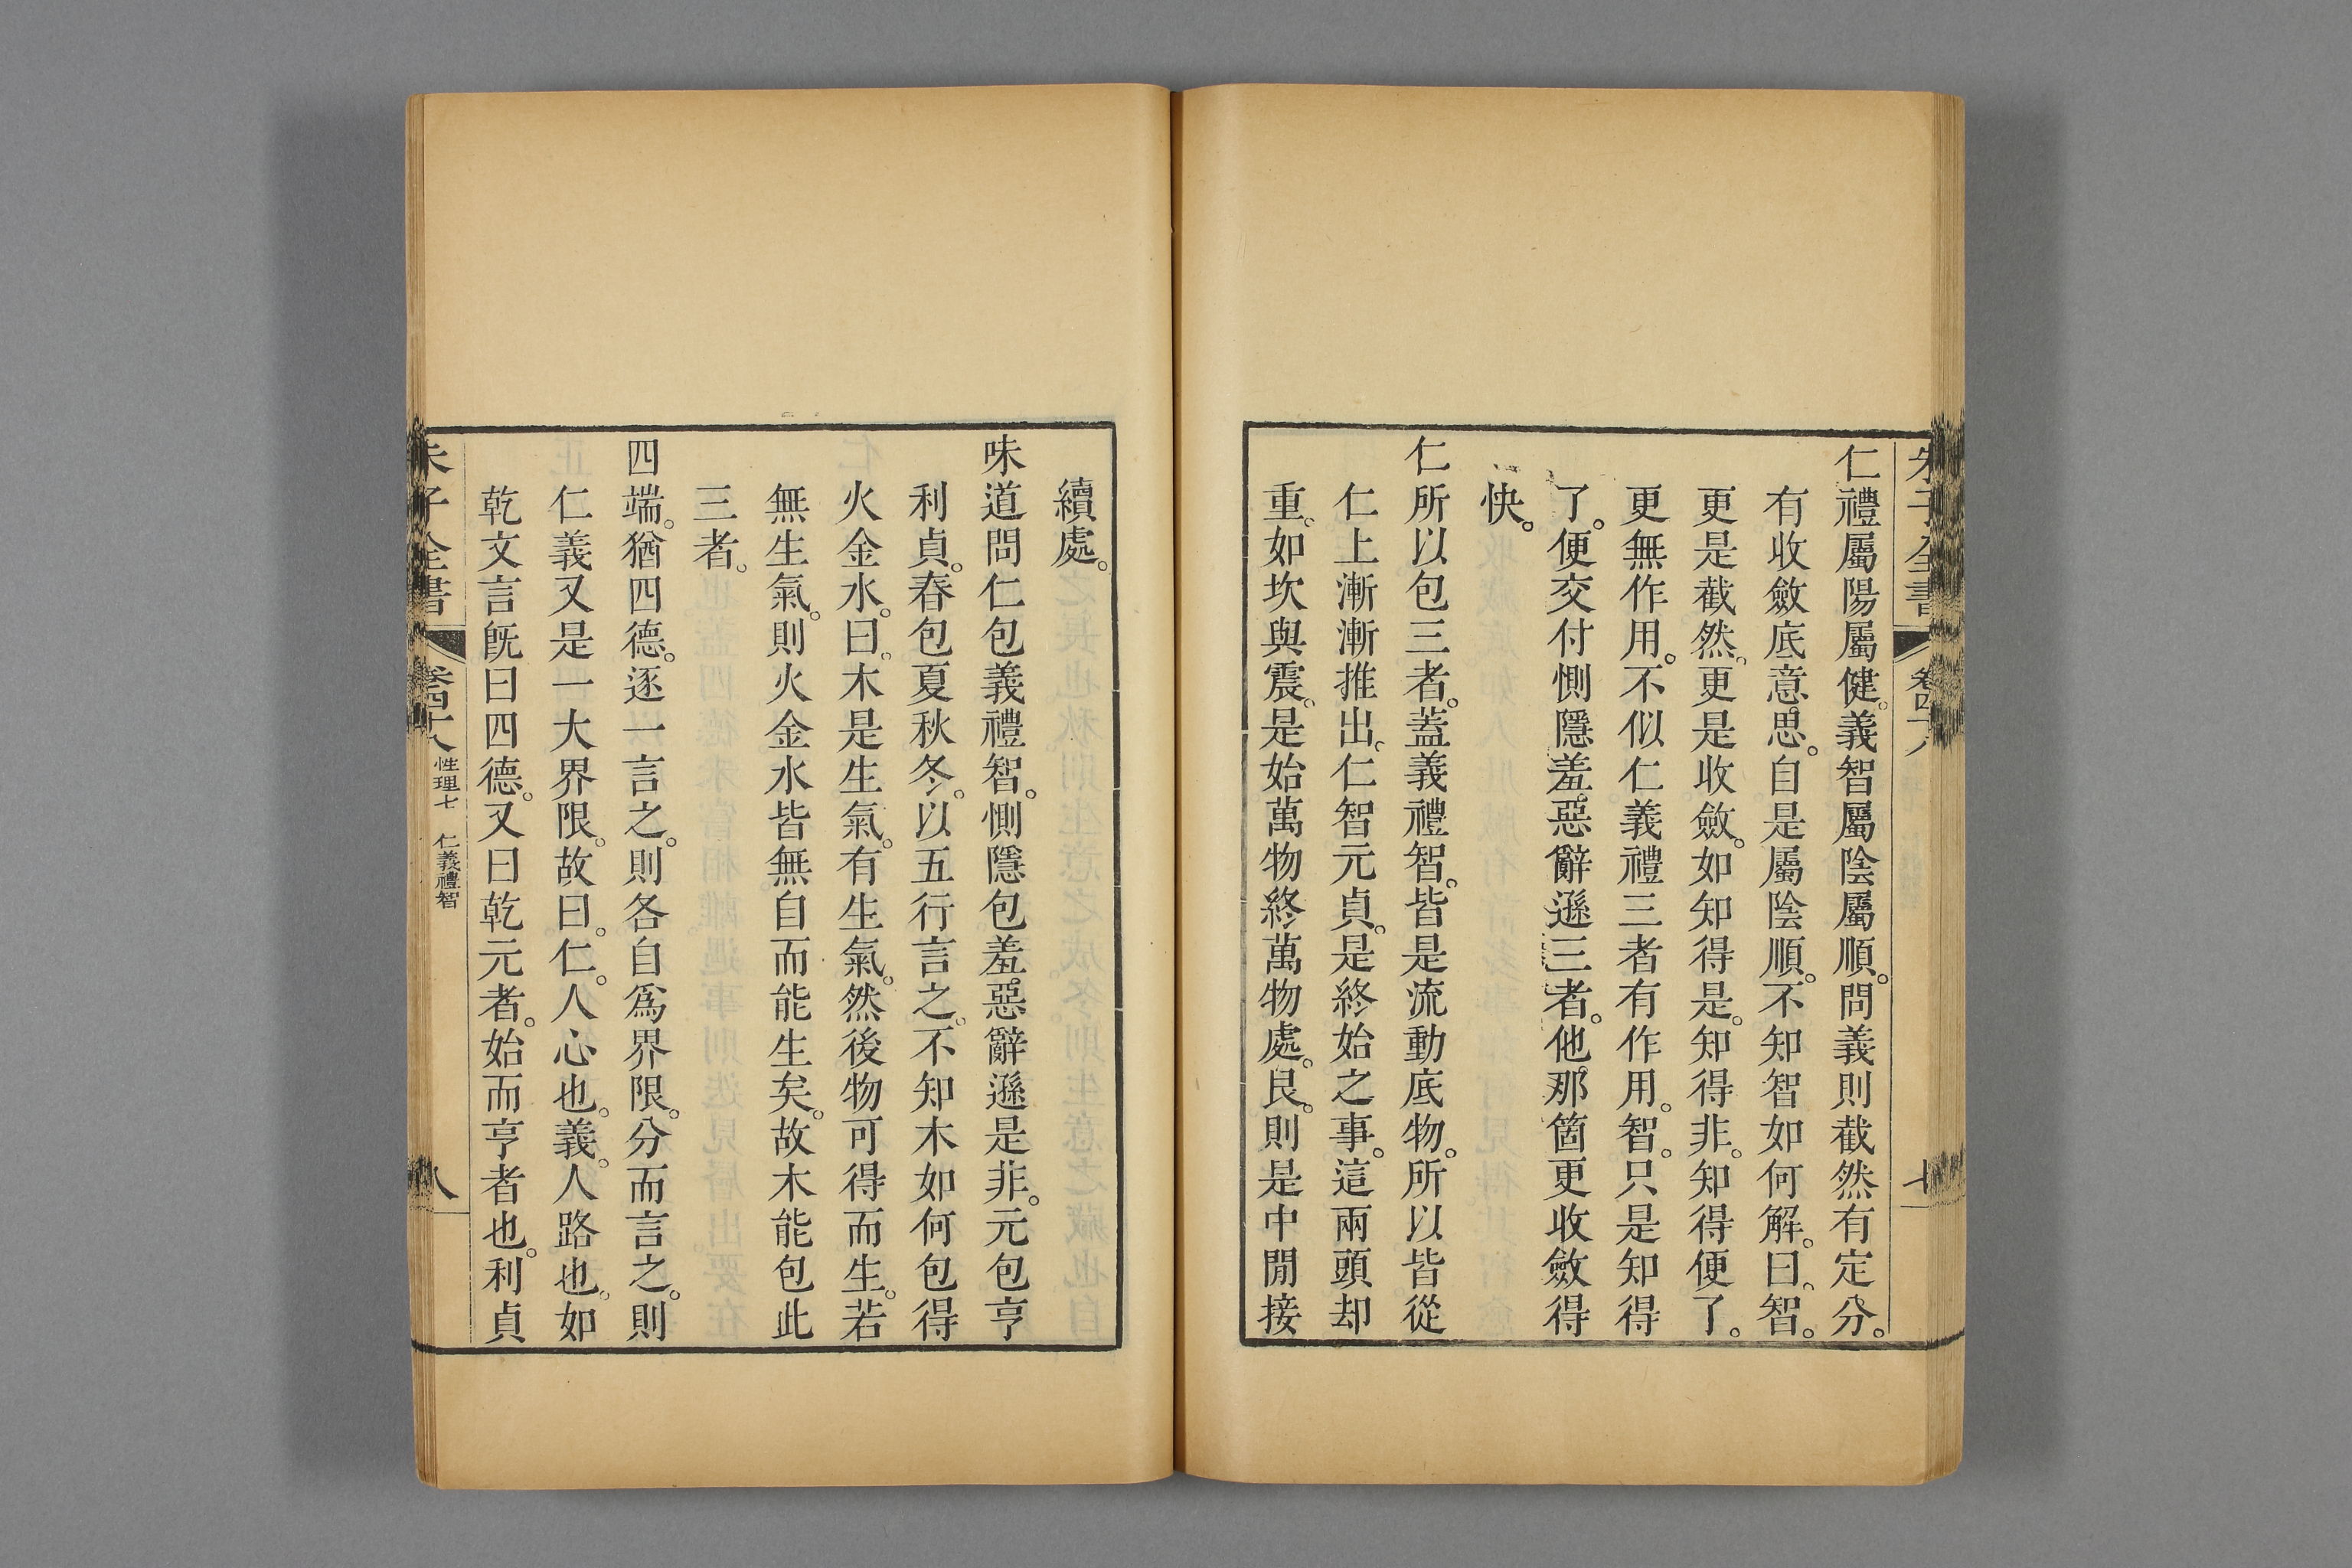 朱子全書 卷四十八 七
仁禮屬陽屬健。義智屬陰屬順。問義則截然有定分。
有收斂底意思。自是屬陰順。不知智如何解。曰。智。
更是截然。更是收斂。如知得是。知得非。知得便了。
更無作用。不似仁義禮三者有作用。智。只是知得
了。便交付惻隱羞惡辭遜三者。他那箇更收斂得
快。
仁所以包三者。蓋義禮智。皆是流動底物。所以皆從
仁上漸漸推出。仁智元貞。是終始之事。這兩頭却
重。如坎與震。是始萬物終萬物處。艮。則是中閒接
續處。
味道問仁包義禮智。惻隱包羞惡辭遜是非。元包亨
利貞。春包夏秋冬。以五行言之。不知木如何包得
火金水。曰。木是生氣。有生氣。然後物可得而生。若
無生氣。則火金水皆無自而能生矣。故木能包此
三者。
四端。猶四德。逐一言之。則各自爲界限。分而言之。則
仁義又是一大界限。故曰。仁。人心也。義。人路也。如
乾文言旣曰四德。又曰乾元者。始而亨者也。利貞
朱子全書 卷四十八 性理七 仁義禮智 八